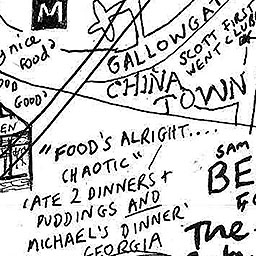 M
nice
food'
GALLOWGAT
SCOTT FIRST
WENT CLUB
CHINA
TOWN
OOD
GOOD'
EN
"FOOD'S ALRIGHT....
CHAOTIC"
'ATE 2 DINNERS +
PUDDINGS AND
MICHAEL'S DINNER'
GEORGIA
SAM
BE
The